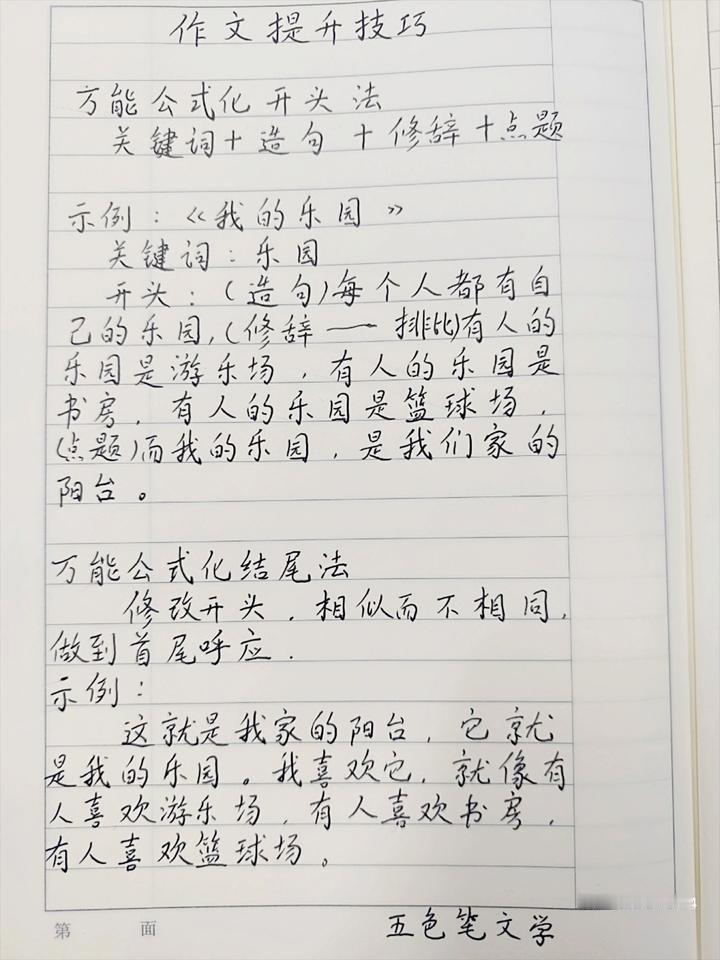 作文提升技巧
万能公式化开头法
关键词+造句+修辞+点题
示例：《我的乐园》
关键词：乐园
开头：(造句)每个人都有自
己的乐园,(修辞——排比)有人的
乐园是游乐场，有人的乐园是
书房，有人的乐园是篮球场，
(点题)而我的乐园，是我们家的
阳台。
万能公式化结尾法
修改开头，相似而不相同，
做到首尾呼应.
示例：
这就是我家的阳台，它就
是我的乐园。我喜欢它，就像有
人喜欢游乐场，有人喜欢书房，
有人喜欢篮球场。
第 面
五色笔文学